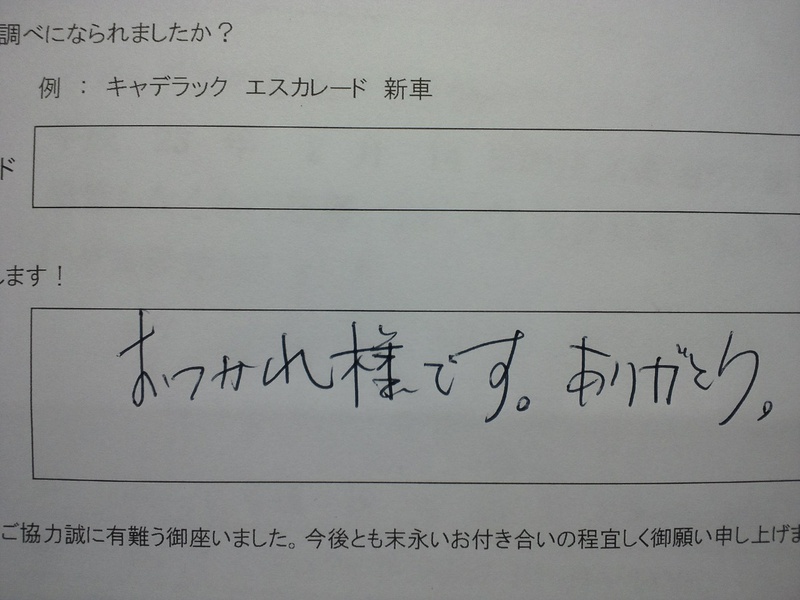 調べになられましたか？
例 ： キャデラック エスカレード 新車
ド
します！
おつかれ様です。ありがとう。
ご協力誠に有難う御座いました。今後とも末永いお付き合いの程宜しく御願い申し上げま